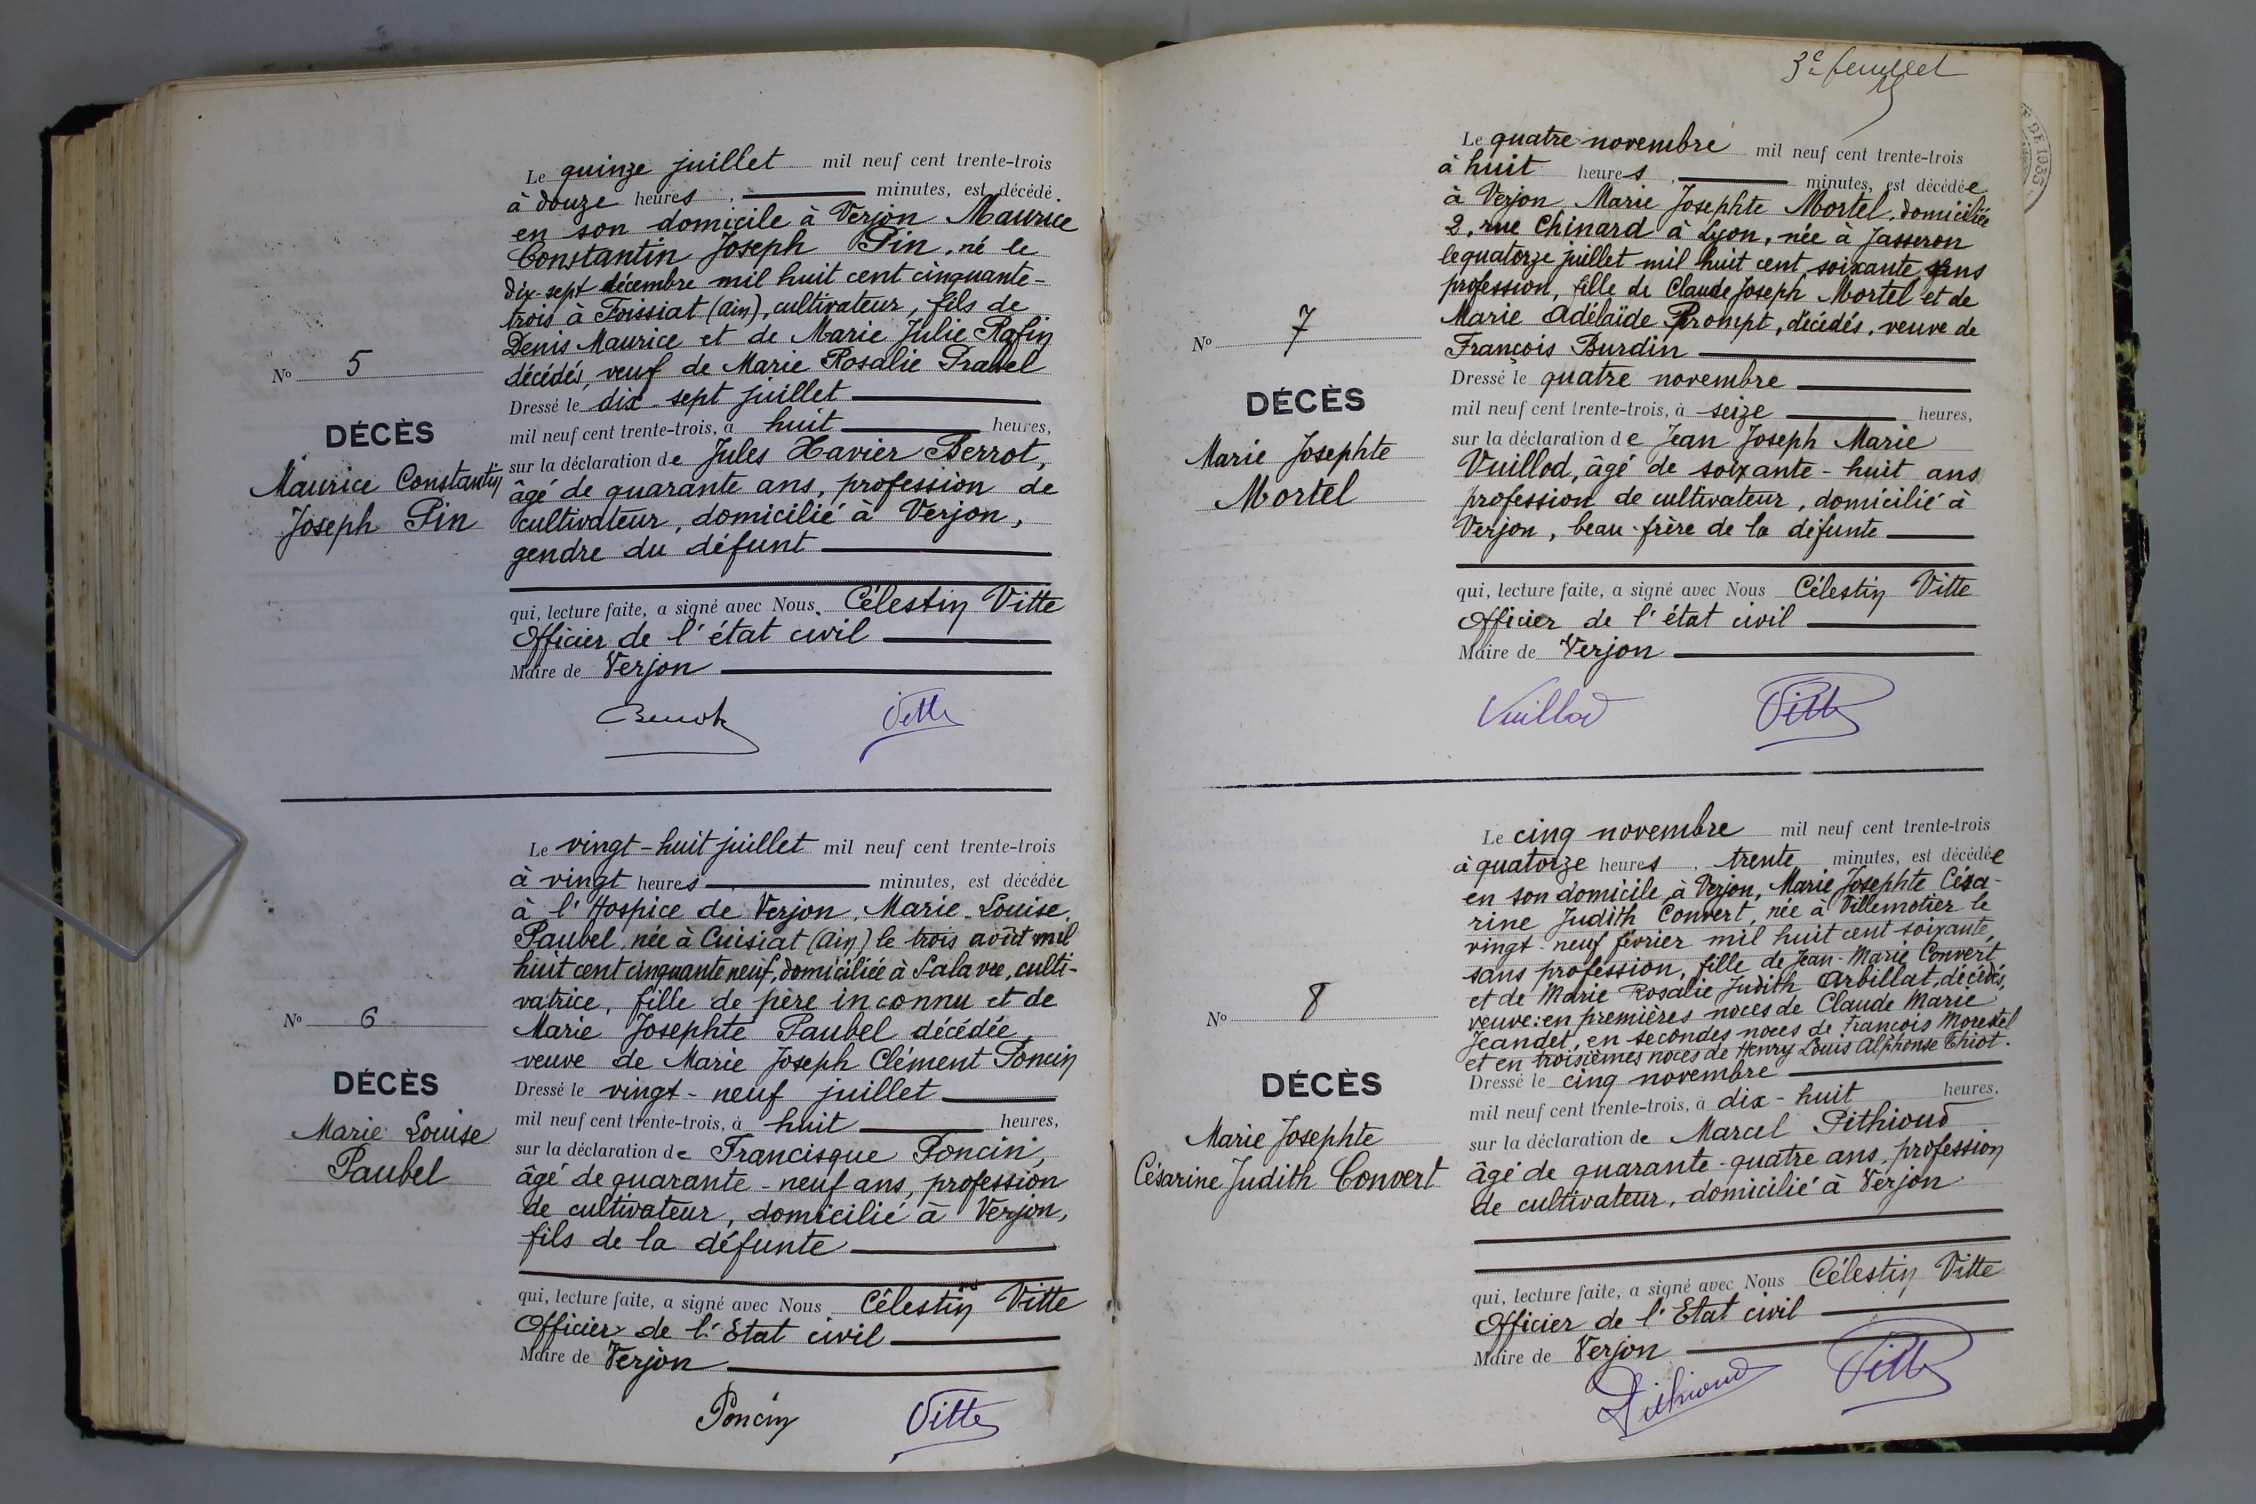 Le quinze juillet mil neuf cent trente-trois
à douze heures, minutes, est décédé
en son domicile à Verjon Maurice
Constantin Joseph Pin, né le
dix-sept décembre mil huit cent cinquante-
trois à Foissiat (Ain), cultivateur, fils de
Denis Maurice et de Marie Julie Rafin
décédés, veuf de Marie Rosalie
Dressé le dix-sept juillet
mil neuf cent trente-trois, à huit heures,
sur la déclaration de Jules Xavier Berrot,
âgé de quarante ans, profession de
cultivateur, domicilié à Verjon,
gendre du défunt
qui, lecture faite, a signé avec Nous, Célestin Vitte
Officier de l'état civil
Maire de Verjon
Vitte
No 5
DÉCÈS
Maurice Constantin
Joseph Pin
Le vingt-huit juillet mil neuf cent trente-trois
à vingt heures minutes, est décédée
à l'Hospice de Verjon, Marie-Louise
Paubel, née à Cuisiat (Ain) le trois août mil
huit cent cinquante neuf, domiciliée à Salavre, culti-
vatrice, fille de père inconnu et de
Marie Josephte Paubel décédée
veuve de Marie Joseph Clément Poncin
Dressé le vingt-neuf juillet
mil neuf cent trente-trois, à huit heures,
sur la déclaration de Francisque Poncin,
âgé de quarante-neuf ans, profession
de cultivateur, domicilié à Verjon,
fils de la défunte
qui, lecture faite, a signé avec Nous Célestin Vitte
Officier de l'Etat civil
Maire de Verjon
Poncin Vitte
No 6
DÉCÈS
Marie Louise
Paubel
3e feuillet
Le quatre novembre mil neuf cent trente-trois
à huit heures, minutes, est décédée
à Verjon Marie Josephte Mortel, domiciliée
2, rue Chinard à Lyon, née à Jasseron
le quatorze juillet mil huit cent soixante, sans
profession, fille de Claude Joseph Mortel et de
Marie Adélaïde Prompt, décédés, veuve de
François Burdin
Dressé le quatre novembre
mil neuf cent trente-trois, à seize heures,
sur la déclaration de Jean Joseph Marie
Vuillod, âgé de soixante-huit ans
profession de cultivateur, domicilié à
Verjon, beau-frère de la défunte
qui, lecture faite, a signé avec Nous Célestin Vitte
Officier de l'état civil
Maire de Verjon
Vuillod Vitte
No 7
DÉCÈS
Marie Josephte
Mortel
Le cinq novembre mil neuf cent trente-trois
à quatorze heures, trente minutes, est décédée
en son domicile à Verjon, Marie Josephte Césa-
rine Judith Convert, née à Villemotier le
vingt-neuf février mil huit cent soixante,
sans profession, fille de Jean-Marie Convert
et de Marie Rosalie Judith Arbillat, décédés,
veuve: en premières noces de Claude Marie
Jeandet, en secondes noces de François Morestel
et en troisièmes noces de Henry Louis Alphonse Thiot.
Dressé le cinq novembre
mil neuf cent trente-trois, à dix-huit heures,
sur la déclaration de Marcel Pithioud
âgé de quarante-quatre ans, profession
de cultivateur, domicilié à Verjon
qui, lecture faite, a signé avec Nous Célestin Vitte
Officier de l'Etat civil
Maire de Verjon
Pithioud Vitte
No 8
DÉCÈS
Marie Josephte
Césarine Judith Convert